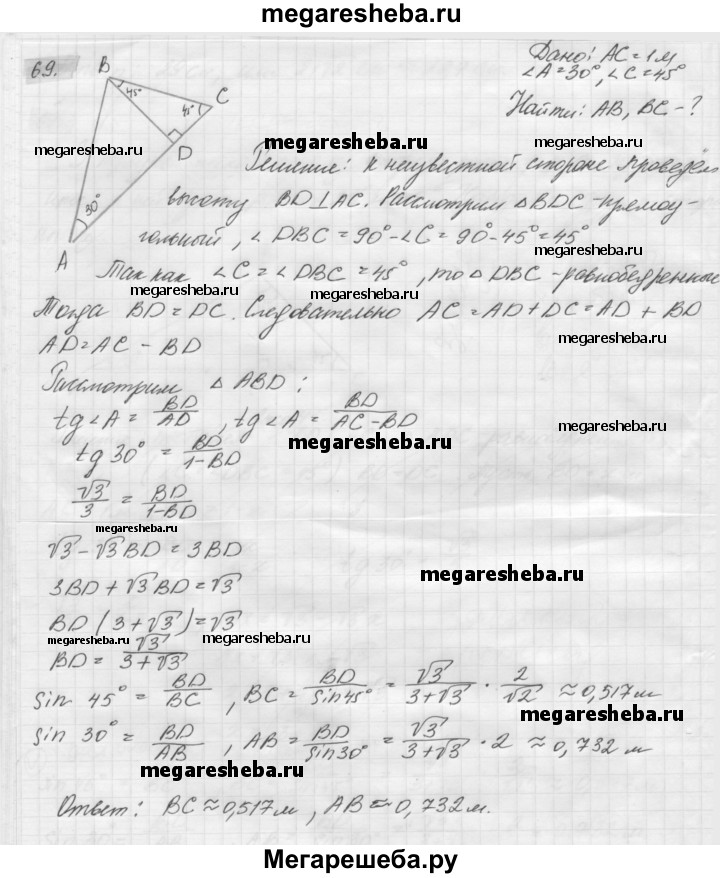 megaresheba.ru
69.
B
45°
45°
C
D
30°
A
Дано: AC = 1 м
∠A = 30°, ∠C = 45°
Найти: AB, BC - ?
megaresheba.ru
megaresheba.ru
Решение: к неизвестной стороне проведём
megaresheba.ru
высоту BD⊥AC. Рассмотрим △BDC - прямоу-
гольный, ∠DBC = 90° - ∠C = 90° - 45° = 45°
megaresheba.ru
Так как ∠C = ∠DBC = 45°, то △DBC - равнобедренный
megaresheba.ru
megaresheba.ru
Тогда BD = DC. Следовательно AC = AD + DC = AD + BD
AD = AC - BD
megaresheba.ru
Рассмотрим △ABD:
tg∠A = BD/AD, tg∠A = BD/AC-BD
megaresheba.ru
tg 30° = BD/1-BD
√3/3 = BD/1-BD
megaresheba.ru
√3 - √3BD = 3BD
megaresheba.ru
3BD + √3BD = √3
BD(3 + √3) = √3
megaresheba.ru
megaresheba.ru
BD = √3/3+√3
sin 45° = BD/BC, BC = BD/sin45° = √3/3+√3 · 2/√2 ≈ 0,517 м
megaresheba.ru
sin 30° = BD/AB, AB = BD/sin30° = √3/3+√3 · 2 ≈ 0,732 м
megaresheba.ru
Ответ: BC ≈ 0,517 м, AB ≈ 0,732 м.
Мегарешеба.ру